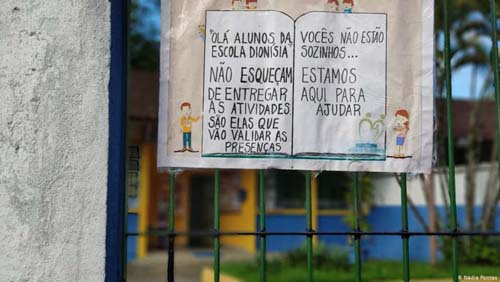 "OLÁ ALUNOS DA
ESCOLA DIONISIA
NÃO ESQUEÇAM
DE ENTREGAR
AS ATIVIDADES.
SÃO ELAS QUE
VÃO VALIDAR AS
PRESENÇAS
VOCÊS NÃO ESTÃO
SOZINHOS...
ESTAMOS
AQUI PARA
AJUDAR
© Nádia Pontes